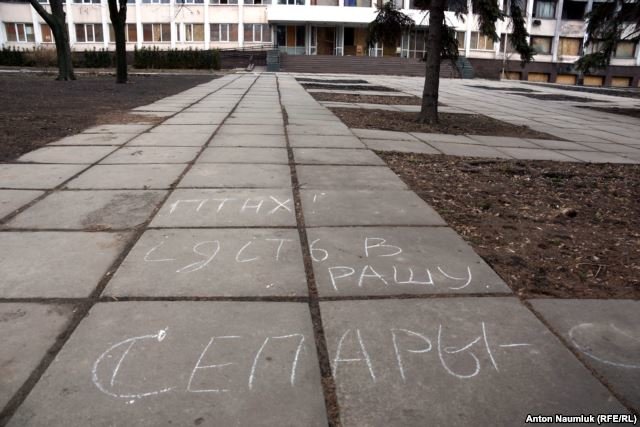 ПТНХ!
СЯСТЬ В
РАШУ.
СЕПАРЫ-
Anton Naumluk (RFE/RL)